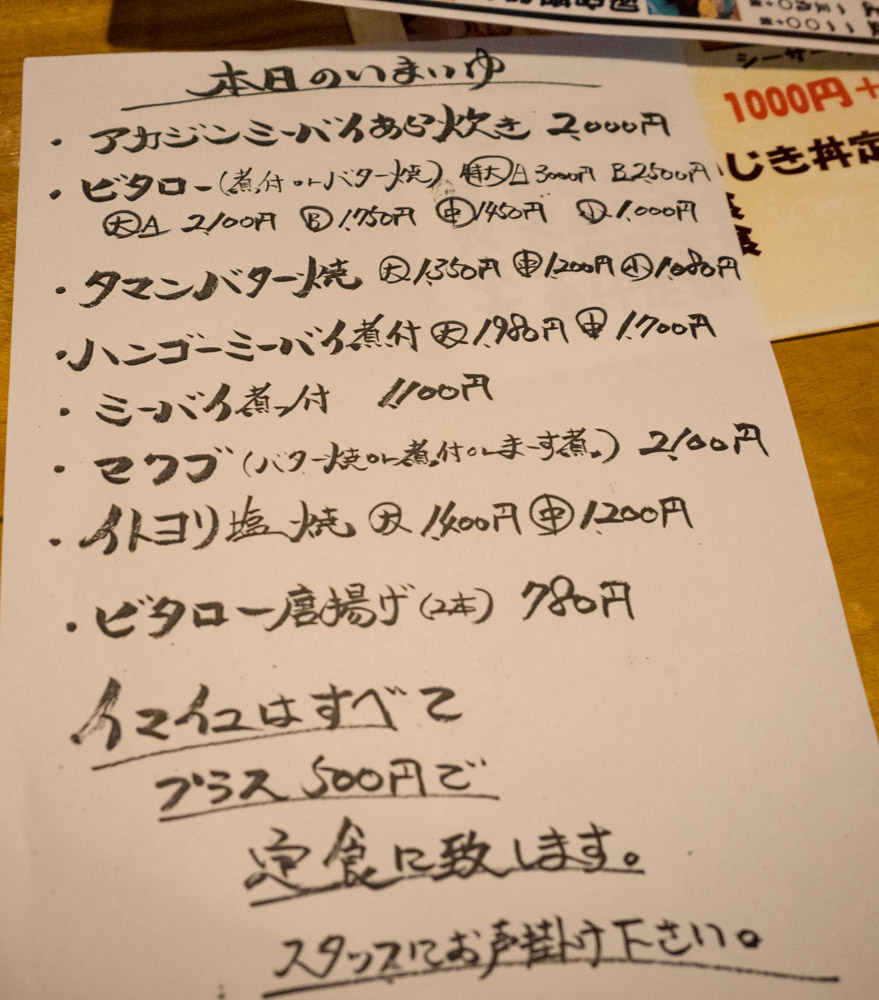 本日のいまいゆ
・アカジンミーバイあら炊き 2,000円
・ビタロー(煮付orバター焼) 特大A 3000円 B 2,500円
大A 2,100円 B 1,750円 中 1,450円 小 1,000円
・タマンバター焼 大 1,350円 中 1,200円 小 1,080円
・ハンゴーミーバイ煮付 大 1,980円 中 1,700円
・ミーバイ煮付 1,100円
・マクブ(バター焼or煮付orまーす煮) 2,100円
・イトヨリ塩焼 大 1,400円 中 1,200円
・ビタロー唐揚げ(2本) 780円
イマイユはすべて
プラス500円で
定食に致します。
スタッフにお声掛け下さい。
シーザー
1000円+
じき丼定